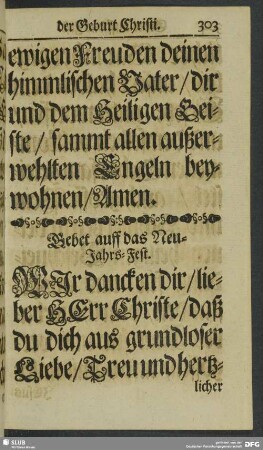 der Geburt Christi. 303
ewigen Freuden deinen
himmlischen Vater/ dir
und dem Heiligen Gei-
ste/ sammt allen außer-
wehlten Engeln bey-
wohnen/ Amen.
Gebet auff das Neu-
Jahrs-Fest.
WIr dancken dir/ lie-
ber HErr Christe/ daß
du dich aus grundloser
Liebe/ Treu und hertz-
licher
SLUB
DFG